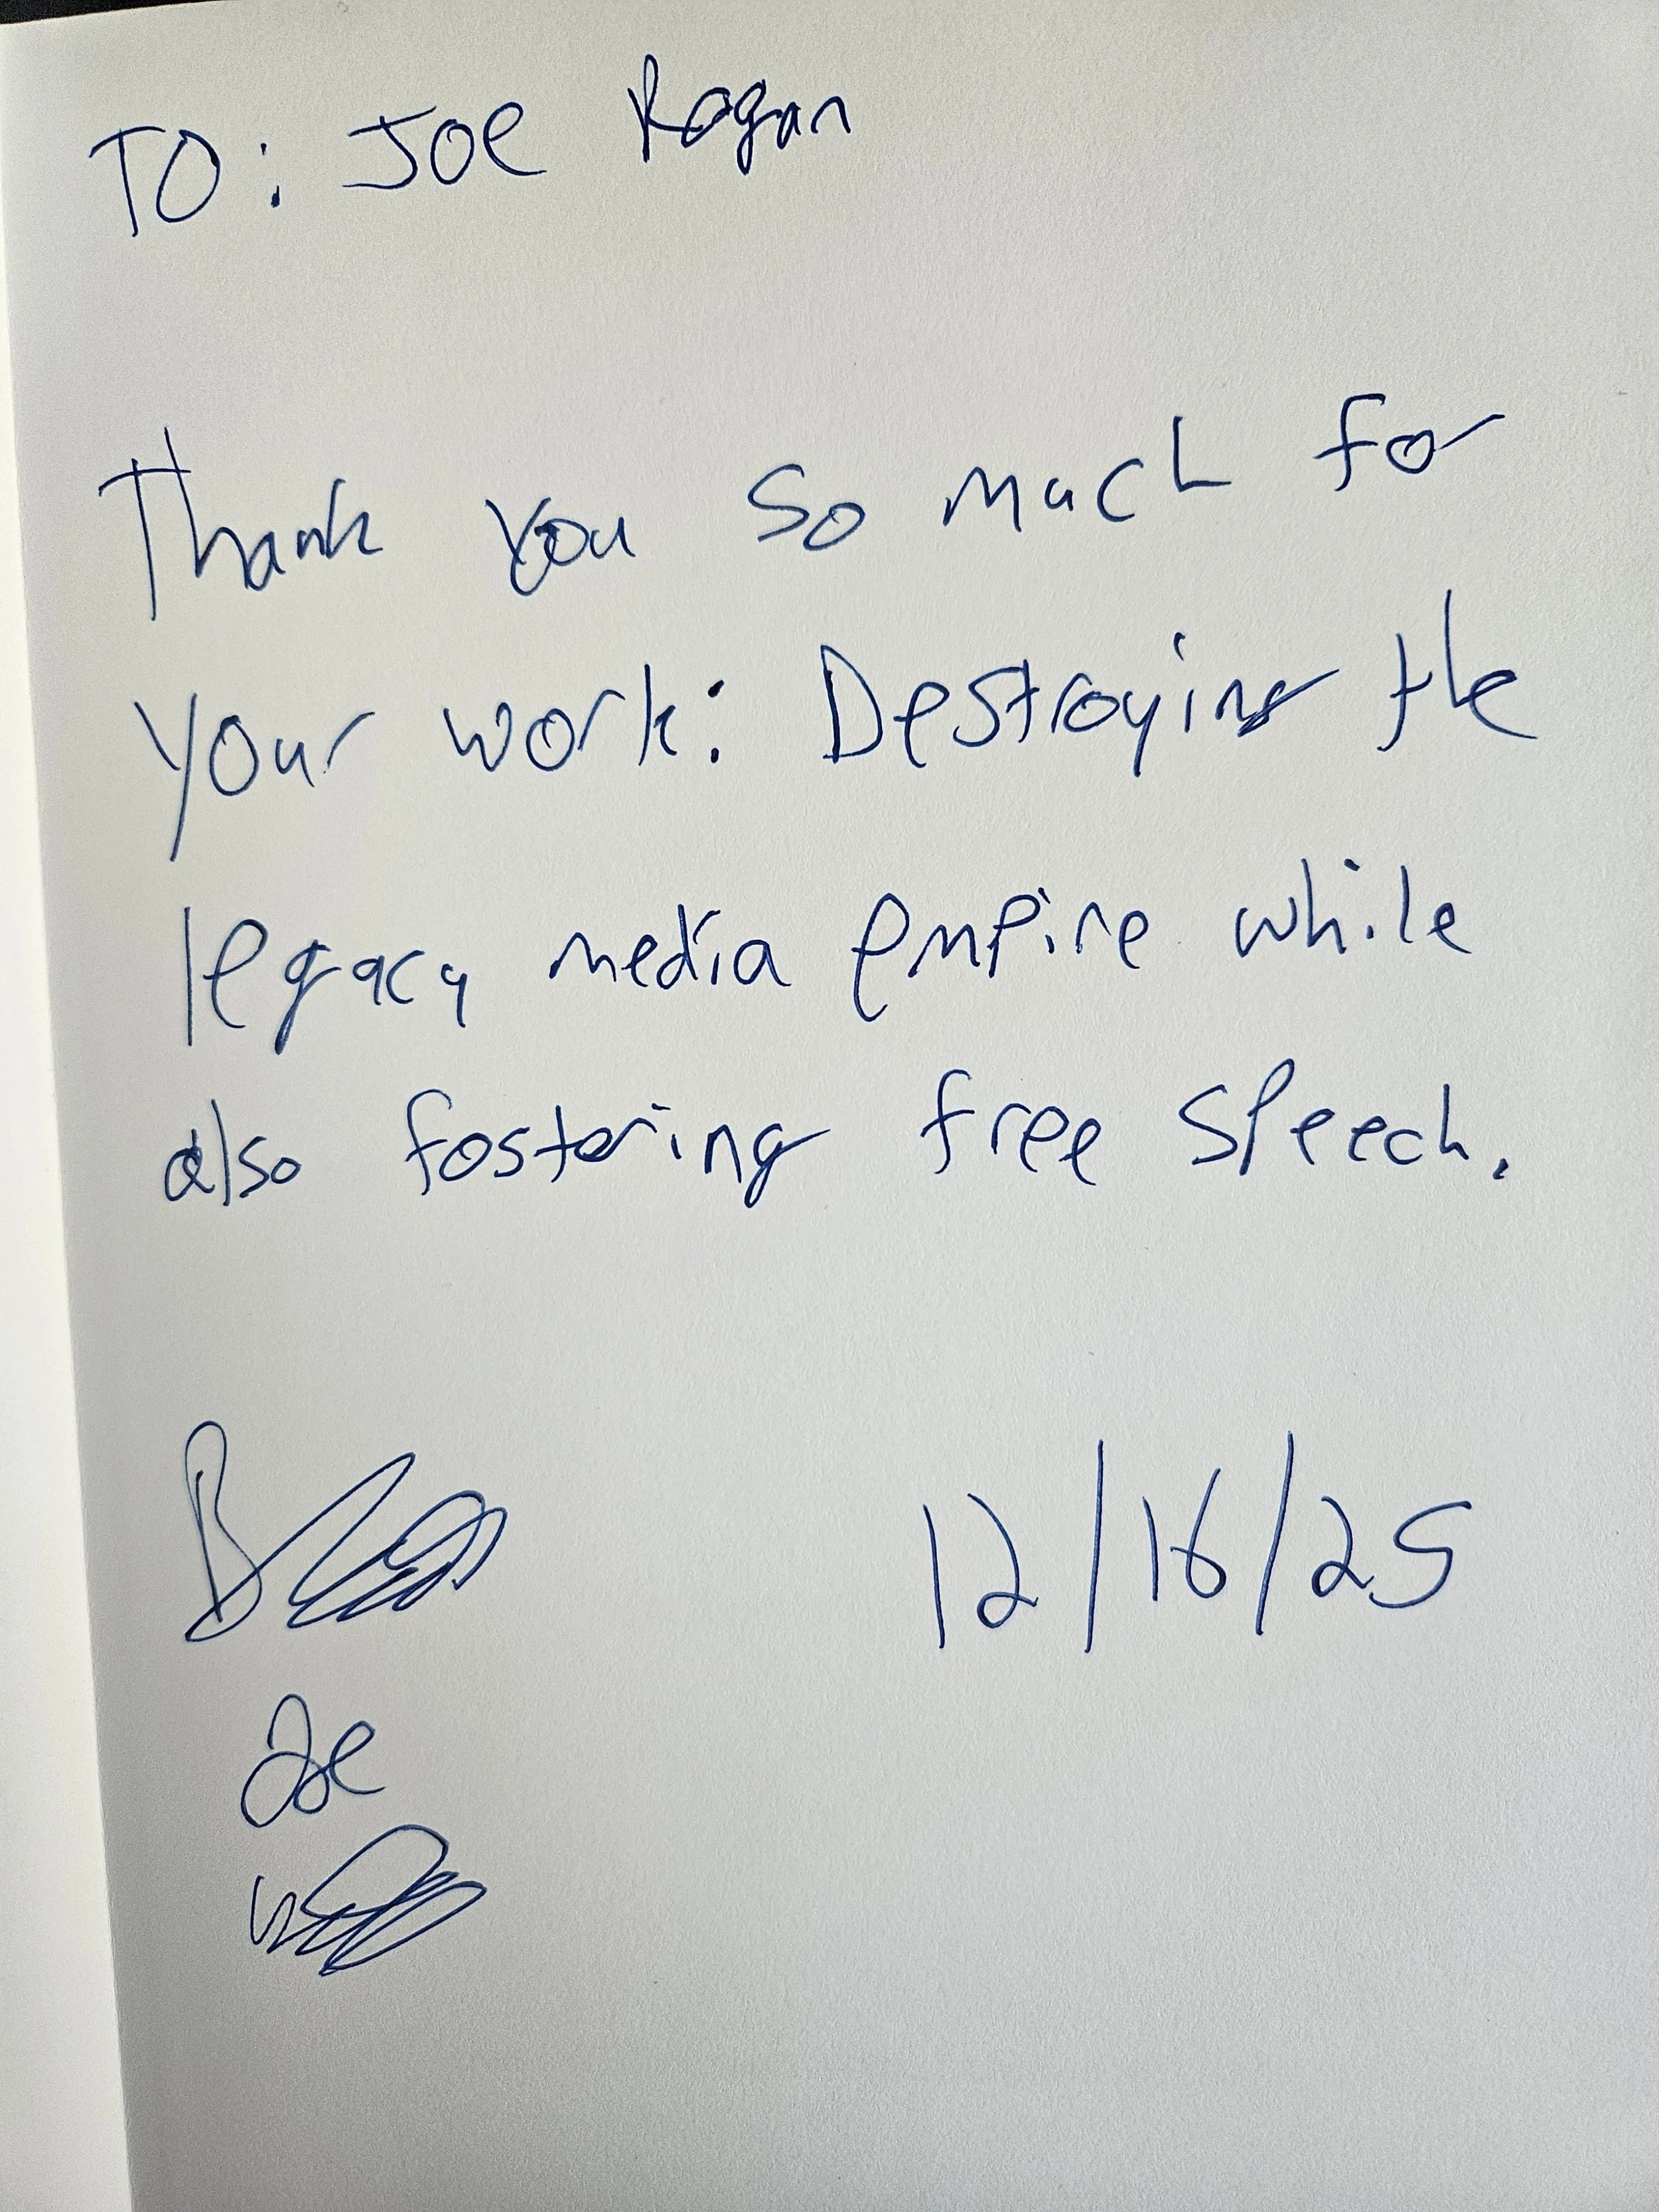 TO: Joe Rogan
Thank you so much for
your work: Destroying the
legacy media empire while
also fostering free speech.
12/16/25